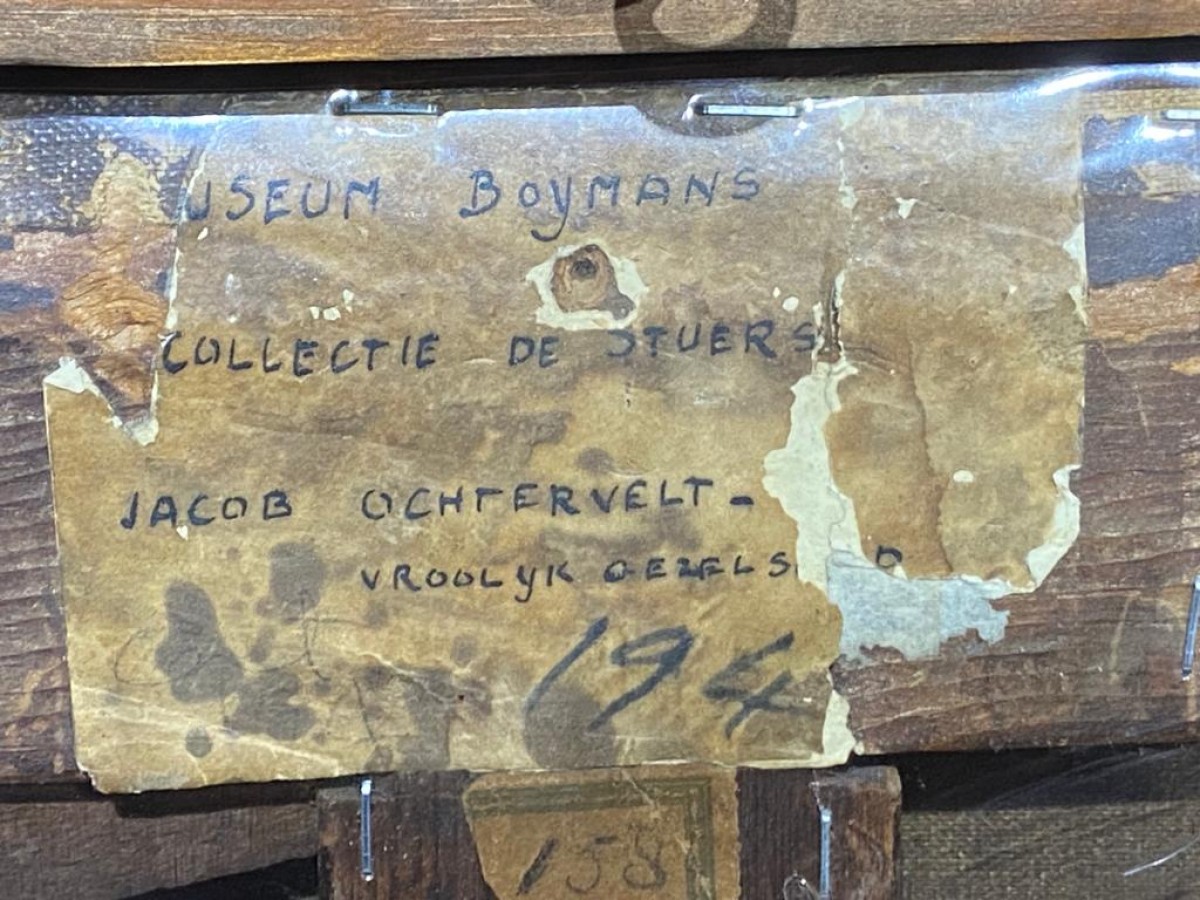 USEUM BOYMANS
COLLECTIE DE STUERS
JACOB OCHTERVELT -
VROOLYK
194
158